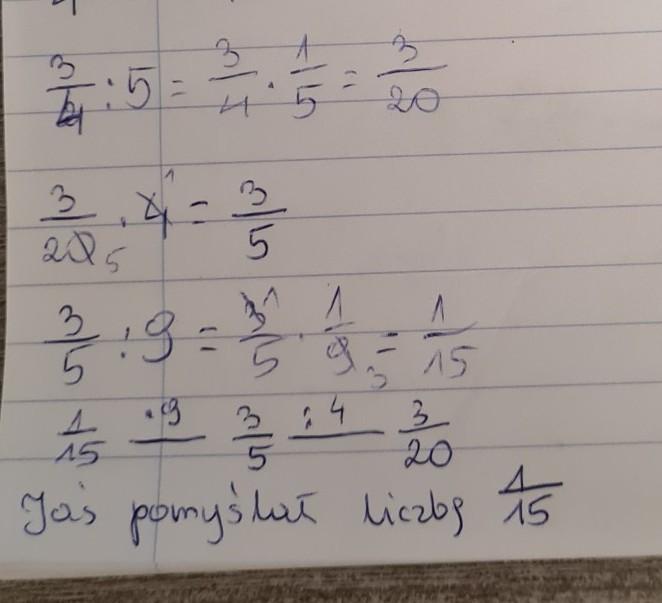 3/4 : 5 = 3/4 · 1/5 = 3/20
3/20 5 · 4 1 = 3/5
3/5 : 9 = 3 1/5 · 1/9 3 = 1/15
1/15 ·9 3/5 :4 3/20
Jaś pomyślał liczbę 1/15